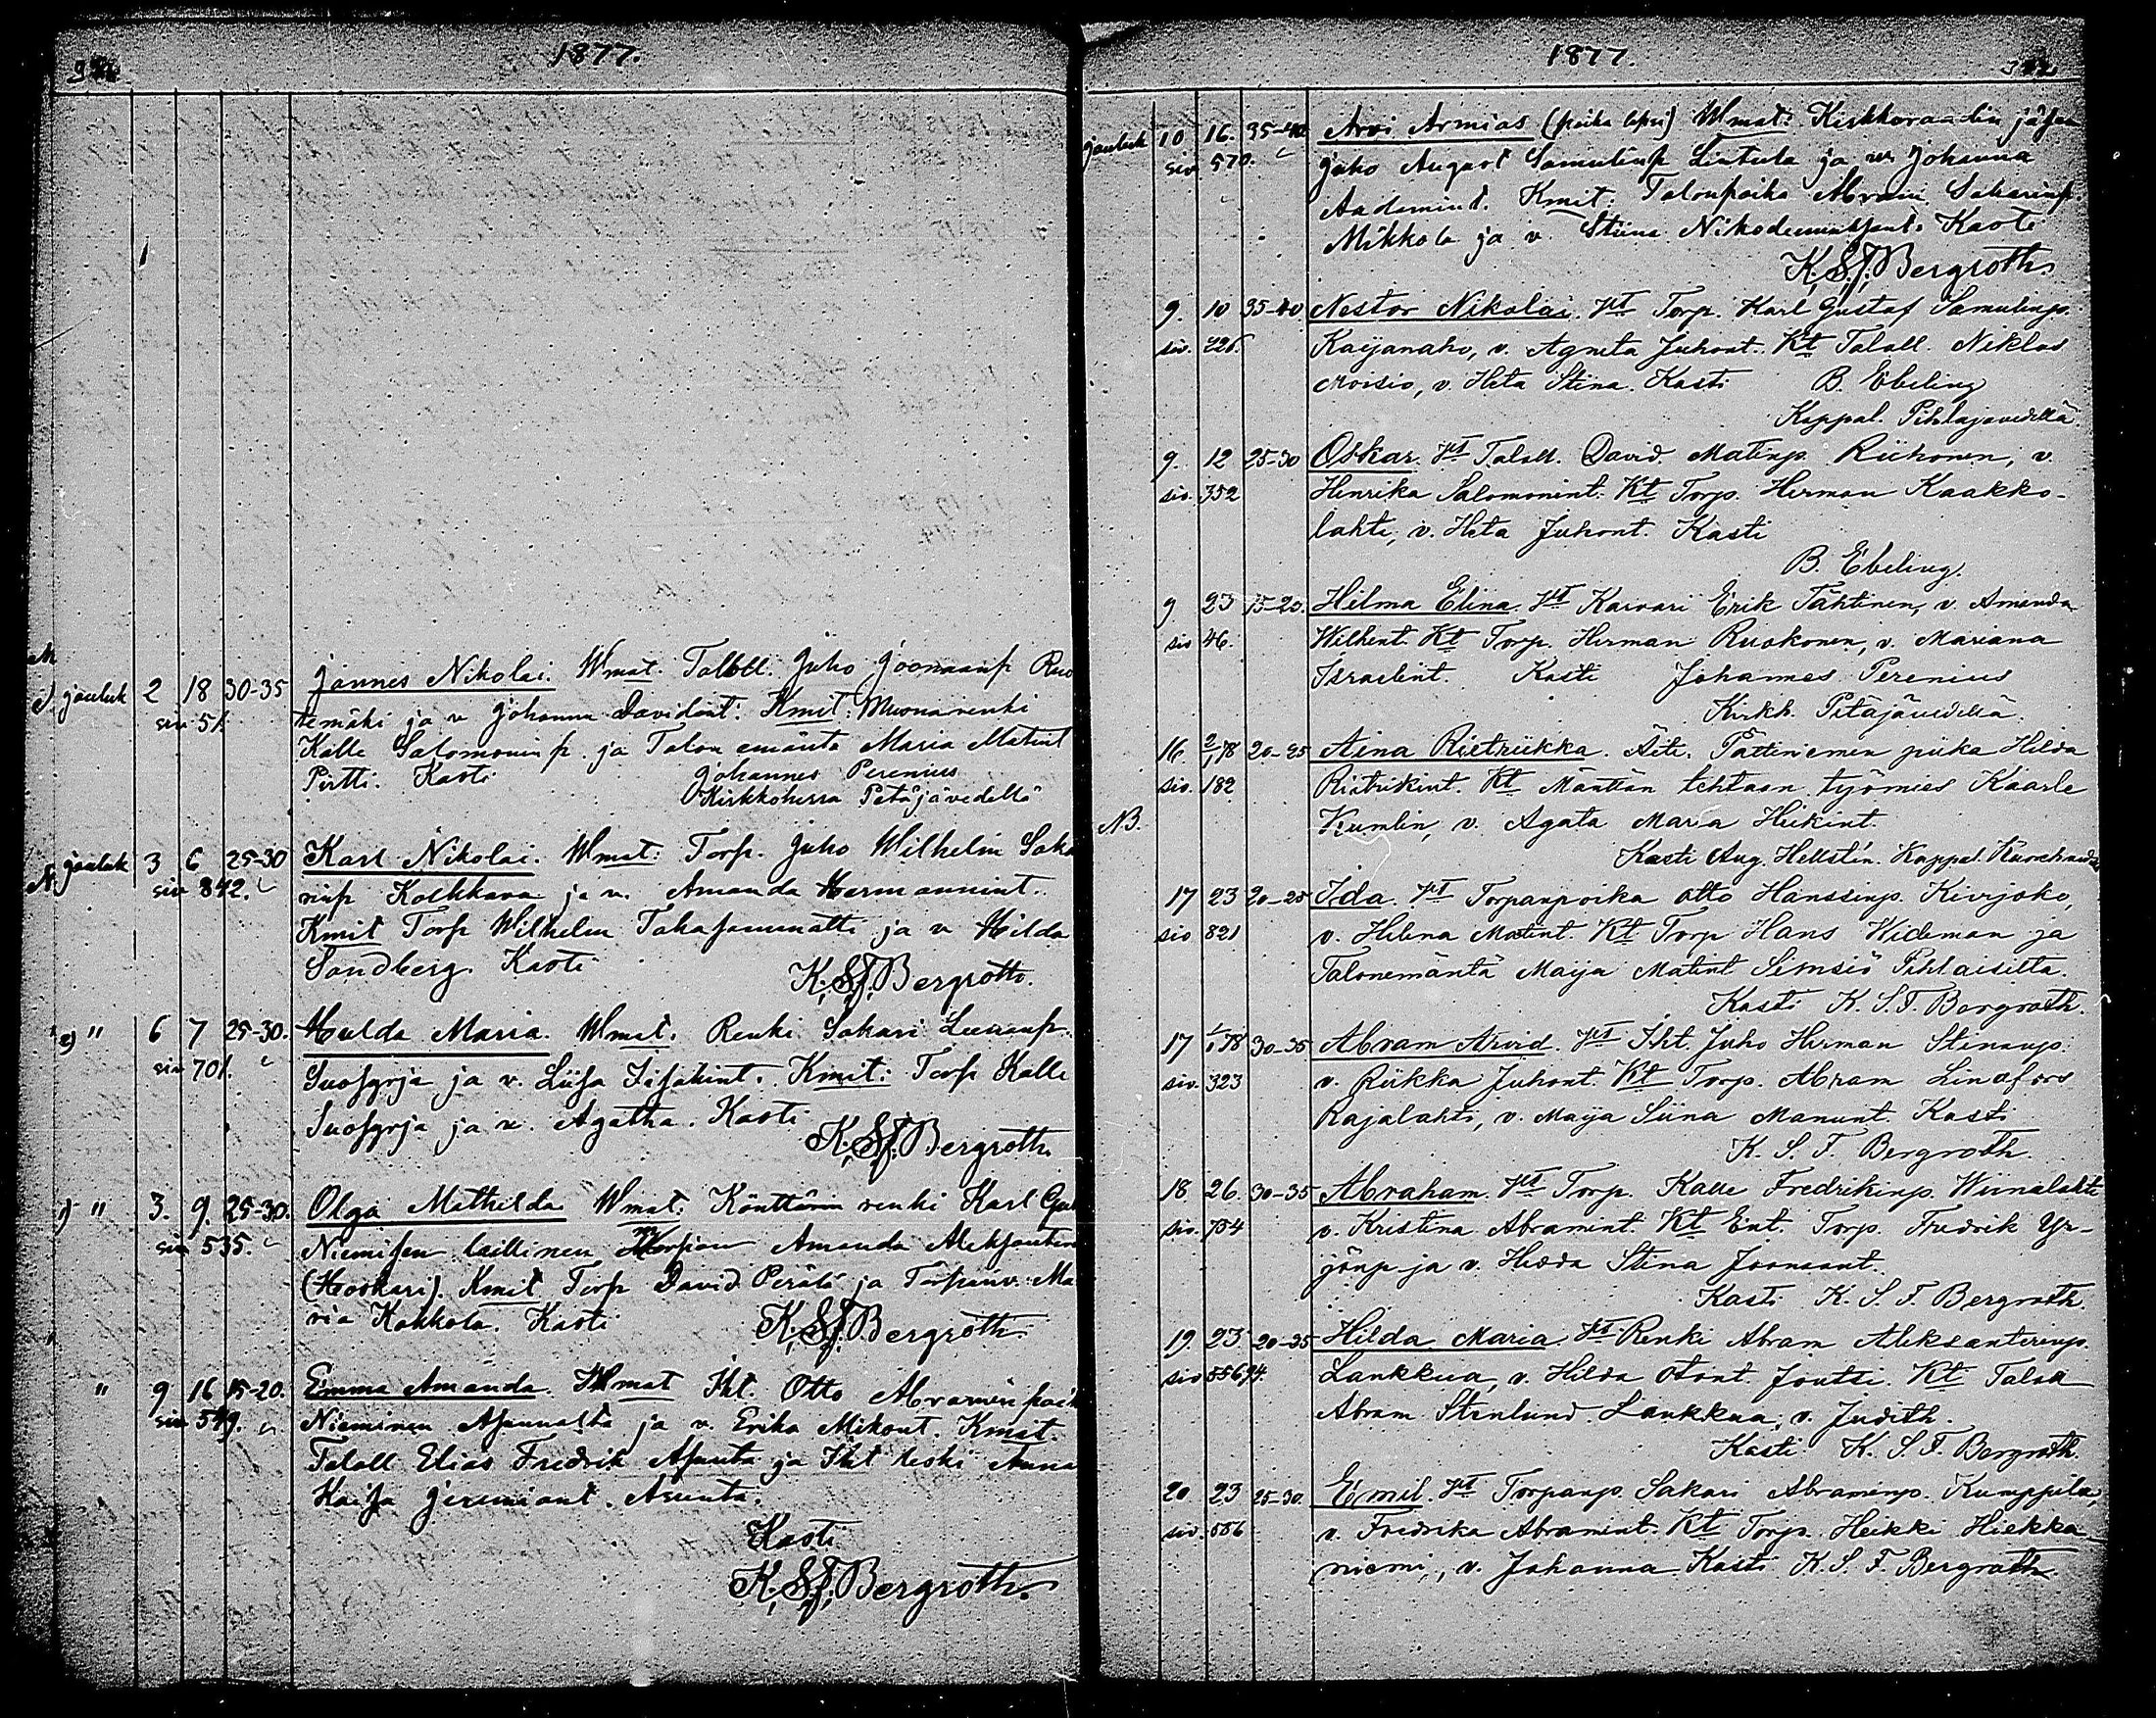 1877.
Jouluk 2 18 30-35 Jannes Nikolai. Wmat. Taloll. Juho Joonaanp Ruo
siv 51. temäki ja v Johanna Davidint. Kmit: Muonarenki
Kalle Salomoninp. ja Talon emäntä Maria Matint
Pirtti. Kasti Johannes Perenius
Kirkkoherra Petäjävedellä
Jouluk 3 6 25-30 Karl Nikolai. Wmat: Torp. Juho Wilhelm Saka
siv 842. rinp Koskkava ja v. Amanda Hermannint.
Kmit Torp Wilhelm ja v Hilda
Sandberg. Kasti K. S. F. Bergroth.
" 6 7 25-30. Hulda Maria. Wmat. Renki Sakari
siv 701. Suosyrja ja v. Liisa Kmit: Torp Kalle
Suosyrja ja v. Agatha. Kasti
K. S. F. Bergroth.
" 3. 9. 25-30. Olga Mathilda Wmat: Könttärin renki Karl
siv 535. Niemisen laillinen Amanda
(Hoskari). Kmit Torp David Perälä ja Torpanv. Ma
ria Kokkola. Kasti K. S. F. Bergroth.
" 9 16 15-20. Emma Amanda. Wmat Iht. Otto Abramin poik
siv 549. Nieminen Asunnalta ja v. Erika Mikont. Kmit.
Taloll Elias Fredrik Asunta ja Iht leski Anna
Kaisa Jeremiant. Asunta.
Kasti
K. S. F. Bergroth.
1877.
Jouluk 10 16. 35-40 Arvi Armias (poika lapsi) Wmat: Kirkkoraadin jäsen
siv 570. Juho August Samulinp Lintula ja v. Johanna
Aadamint. Kmit: Talonpoika Abram Sakarinp.
Mikkola ja v. Stiina Kaste
K. S. F. Bergroth
9. 10 35-40 Nestor Nikolai. Vt Torp. Karl Gustaf Samulinp.
siv. 426. Kaijanaho, v. Agneta Juhont. Kt Taloll. Niklas
Moisio, v. Heta Stina. Kasti B. Ebeling
Kappal. Pihlajavedellä.
9. 12 25-30 Oskar. Vt Taloll. David Matinp. Riihonen, v.
siv. 352 Henrika Salomonint. Kt Torp. Herman Kaakko-
lahti, v. Heta Juhont. Kasti
B. Ebeling.
9 23 15-20. Hilma Elina. Vt Karvari Erik Tähtinen, v. Amanda
siv 46. Wilhent. Kt Torp. Herman Ruokonen, v. Mariana
Israelint. Kasti Johannes Perenius
Kirkh. Petäjävedellä.
16. 2/1 78 20-25 Aina Rietriikka. Äiti, Pättiniemen piika Hilda
siv. 182 Rietrikint. Kt Mänttän tehtaan työmies Kaarle
NB. Kumlin, v. Agata Maria Heikint.
Kasti Aug. Hellstén. Kappal.
17 23 20-25 Ida. Vt Torpanpoika Otto Hanssinp. Kivijoko,
siv 821 v. Helena Matint. Kt Torp Hans Wideman ja
Talonemäntä Maija Matint Simsiö Pihlaisilta.
Kasti K. S. F. Bergroth.
17 1/1 78 30-35 Abram Arvid. Vt Iht. Juho Herman
siv. 323 v. Riikka Juhont. Kt Torp. Abram Lindfors
Rajalahti, v. Maija Siina Manunt. Kasti
K. S. F. Bergroth.
18 26. 30-35 Abraham. Vt Torp. Kalle Fredrikinp. Wiinalahti
siv. 704 v. Kristina Abramint. Kt Ent. Torp. Fredrik Yr-
jönp ja v. Hedda Stina Joonaant.
Kasti K. S. F. Bergroth.
19. 23. 20-35 Hilda Maria. Vt Renki Abram Aleksanterinp.
siv Lankkua, v. Hilda Otont. Joutti. Kt Taloll
Abram Stenlund Lankkua, v. Judith.
Kasti K. S. F. Bergroth.
20 23 25-30. Emil. Vt Torpanp. Sakari Abraminp. Kumppila,
siv. 556 v. Fredrika Abramint. Kt Torp. Heikki Hiekka
niemi, v. Johanna Kasti K. S. F. Bergroth